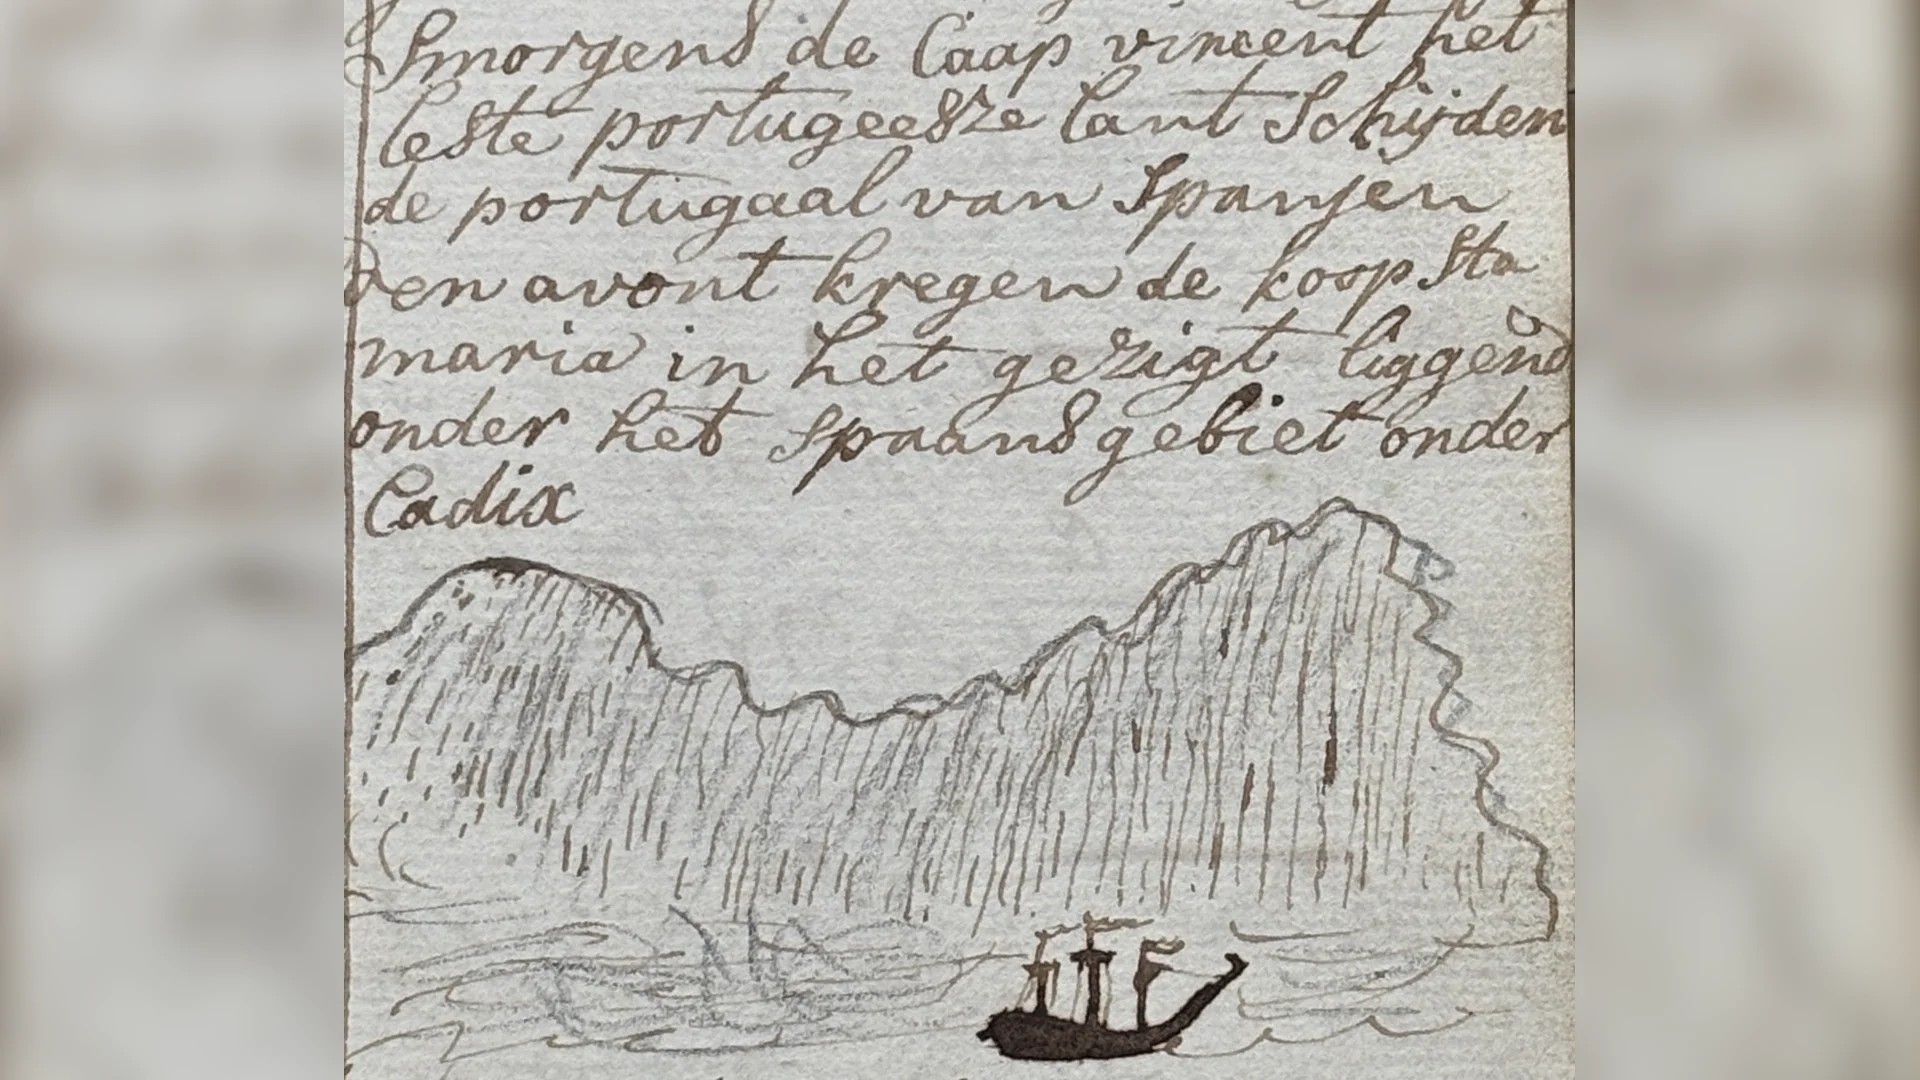 Smorgens de Caap vincent het
leste portugeesze lant Schijden
de portugaal van Spanjen
den avont kregen de koop Sta
maria in het gezigt liggend
onder het Spaans gebiet onder
Cadix